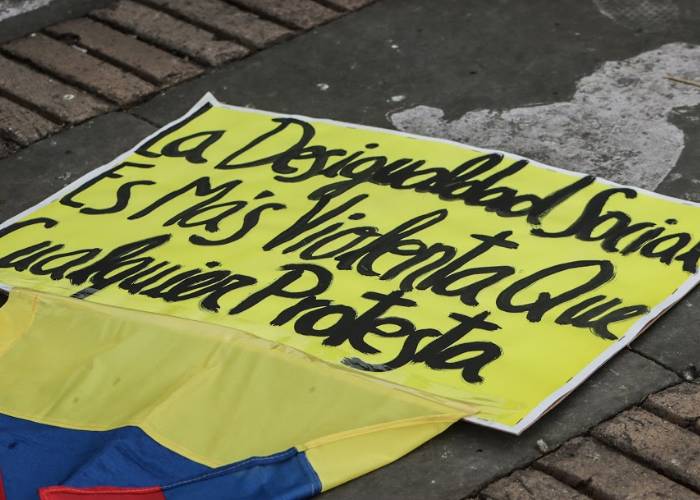 La Desigualdad Social
Es Más Violenta Que
Cualquier Protesta